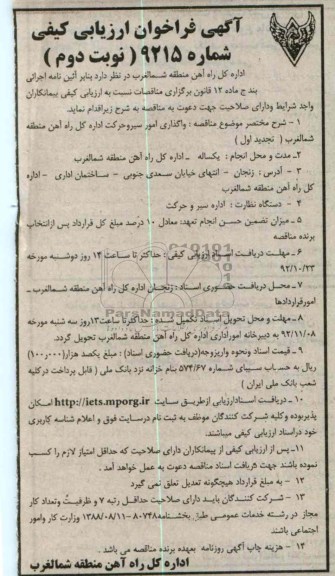 آگهی فراخوان ارزیابی کیفی
شماره ۹۲۱۵ ( نوبت دوم )
اداره کل راه آهن منطقه شمالغرب در نظر دارد بنابر آئین نامه اجرائی
بند ج ماده ۱۲ قانون برگزاری مناقصات نسبت به ارزیابی کیفی پیمانکاران
واجد شرایط ودارای صلاحیت جهت دعوت به مناقصه به شرح زیراقدام نماید.
۱ – شرح مختصر موضوع مناقصه : واگذاری امور سیروحرکت اداره کل راه آهن منطقه
شمالغرب ( تجدید اول )
۲– مدت و محل انجام : یکساله – اداره کل راه آهن منطقه شمالغرب
۳ – آدرس : زنجان – انتهای خیابان سعدی جنوبی – ساختمان اداری – اداره
کل راه آهن منطقه شمالغرب
۴ – دستگاه نظارت : اداره سیر و حرکت
۵ – میزان تضمین حسن انجام تعهد: معادل ۱۰ درصد مبلغ کل قرارداد پس ازانتخاب
برنده مناقصه
۶ – مهلت دریافت اسناد ارزیابی کیفی : حداکثر تا ساعت ۱۴ روز دوشنبه مورخه
۹۲/۱۰/۲۳
۷ – محل دریافت حضوری اسناد : زنجان – اداره کل راه آهن منطقه شمالغرب –
امورقراردادها
۸ – مهلت و محل تحویل اسناد تکمیل شده : حداکثرتا ساعت۱۳روز سه شنبه مورخه
۹۲/۱۱/۰۸ به دبیرخانه اموراداری اداره کل راه آهن منطقه شمالغرب تحویل گردد.
۹ – قیمت اسناد ونحوه واریزوجه(دریافت حضوری اسناد) : مبلغ یکصد هزار(۱۰۰,۰۰۰)
ریال به حساب سیبای شماره ۵۷۴/۶۷ بنام خزانه نزد بانک ملی ( قابل پرداخت درکلیه
شعب بانک ملی ایران )
۱۰ – دریافت اسنادارزیابی ازطریق سایت http://iets.mporg.ir امکان
پذیربوده وکلیه شرکت کنندگان موظف به ثبت نام درسایت فوق و اعلام شناسه کاربری
خود دراسناد ارزیابی کیفی میباشند.
۱۱– پس از ارزیابی کیفی از پیمانکاران دارای صلاحیت که حداقل امتیاز لازم را کسب
نموده باشند جهت دریافت اسناد مناقصه دعوت به عمل خواهد آمد .
۱۲ – به مبلغ قرارداد هیچگونه تعدیل تعلق نمی گیرد
۱۳ – شرکت کنندگان باید دارای صلاحیت حداقل رتبه ۷ و ظرفیت وتعداد کار
مجاز در رشته خدمات عمومی طبق بخشنامه۸۰۷۴۸ – ۱۳۸۸/۰۸/۱۱ وزارت کار وامور
اجتماعی باشند
۱۴ – هزینه چاپ آگهی روزنامه بعهده برنده مناقصه می باشد
اداره کل راه آهن منطقه شمالغرب